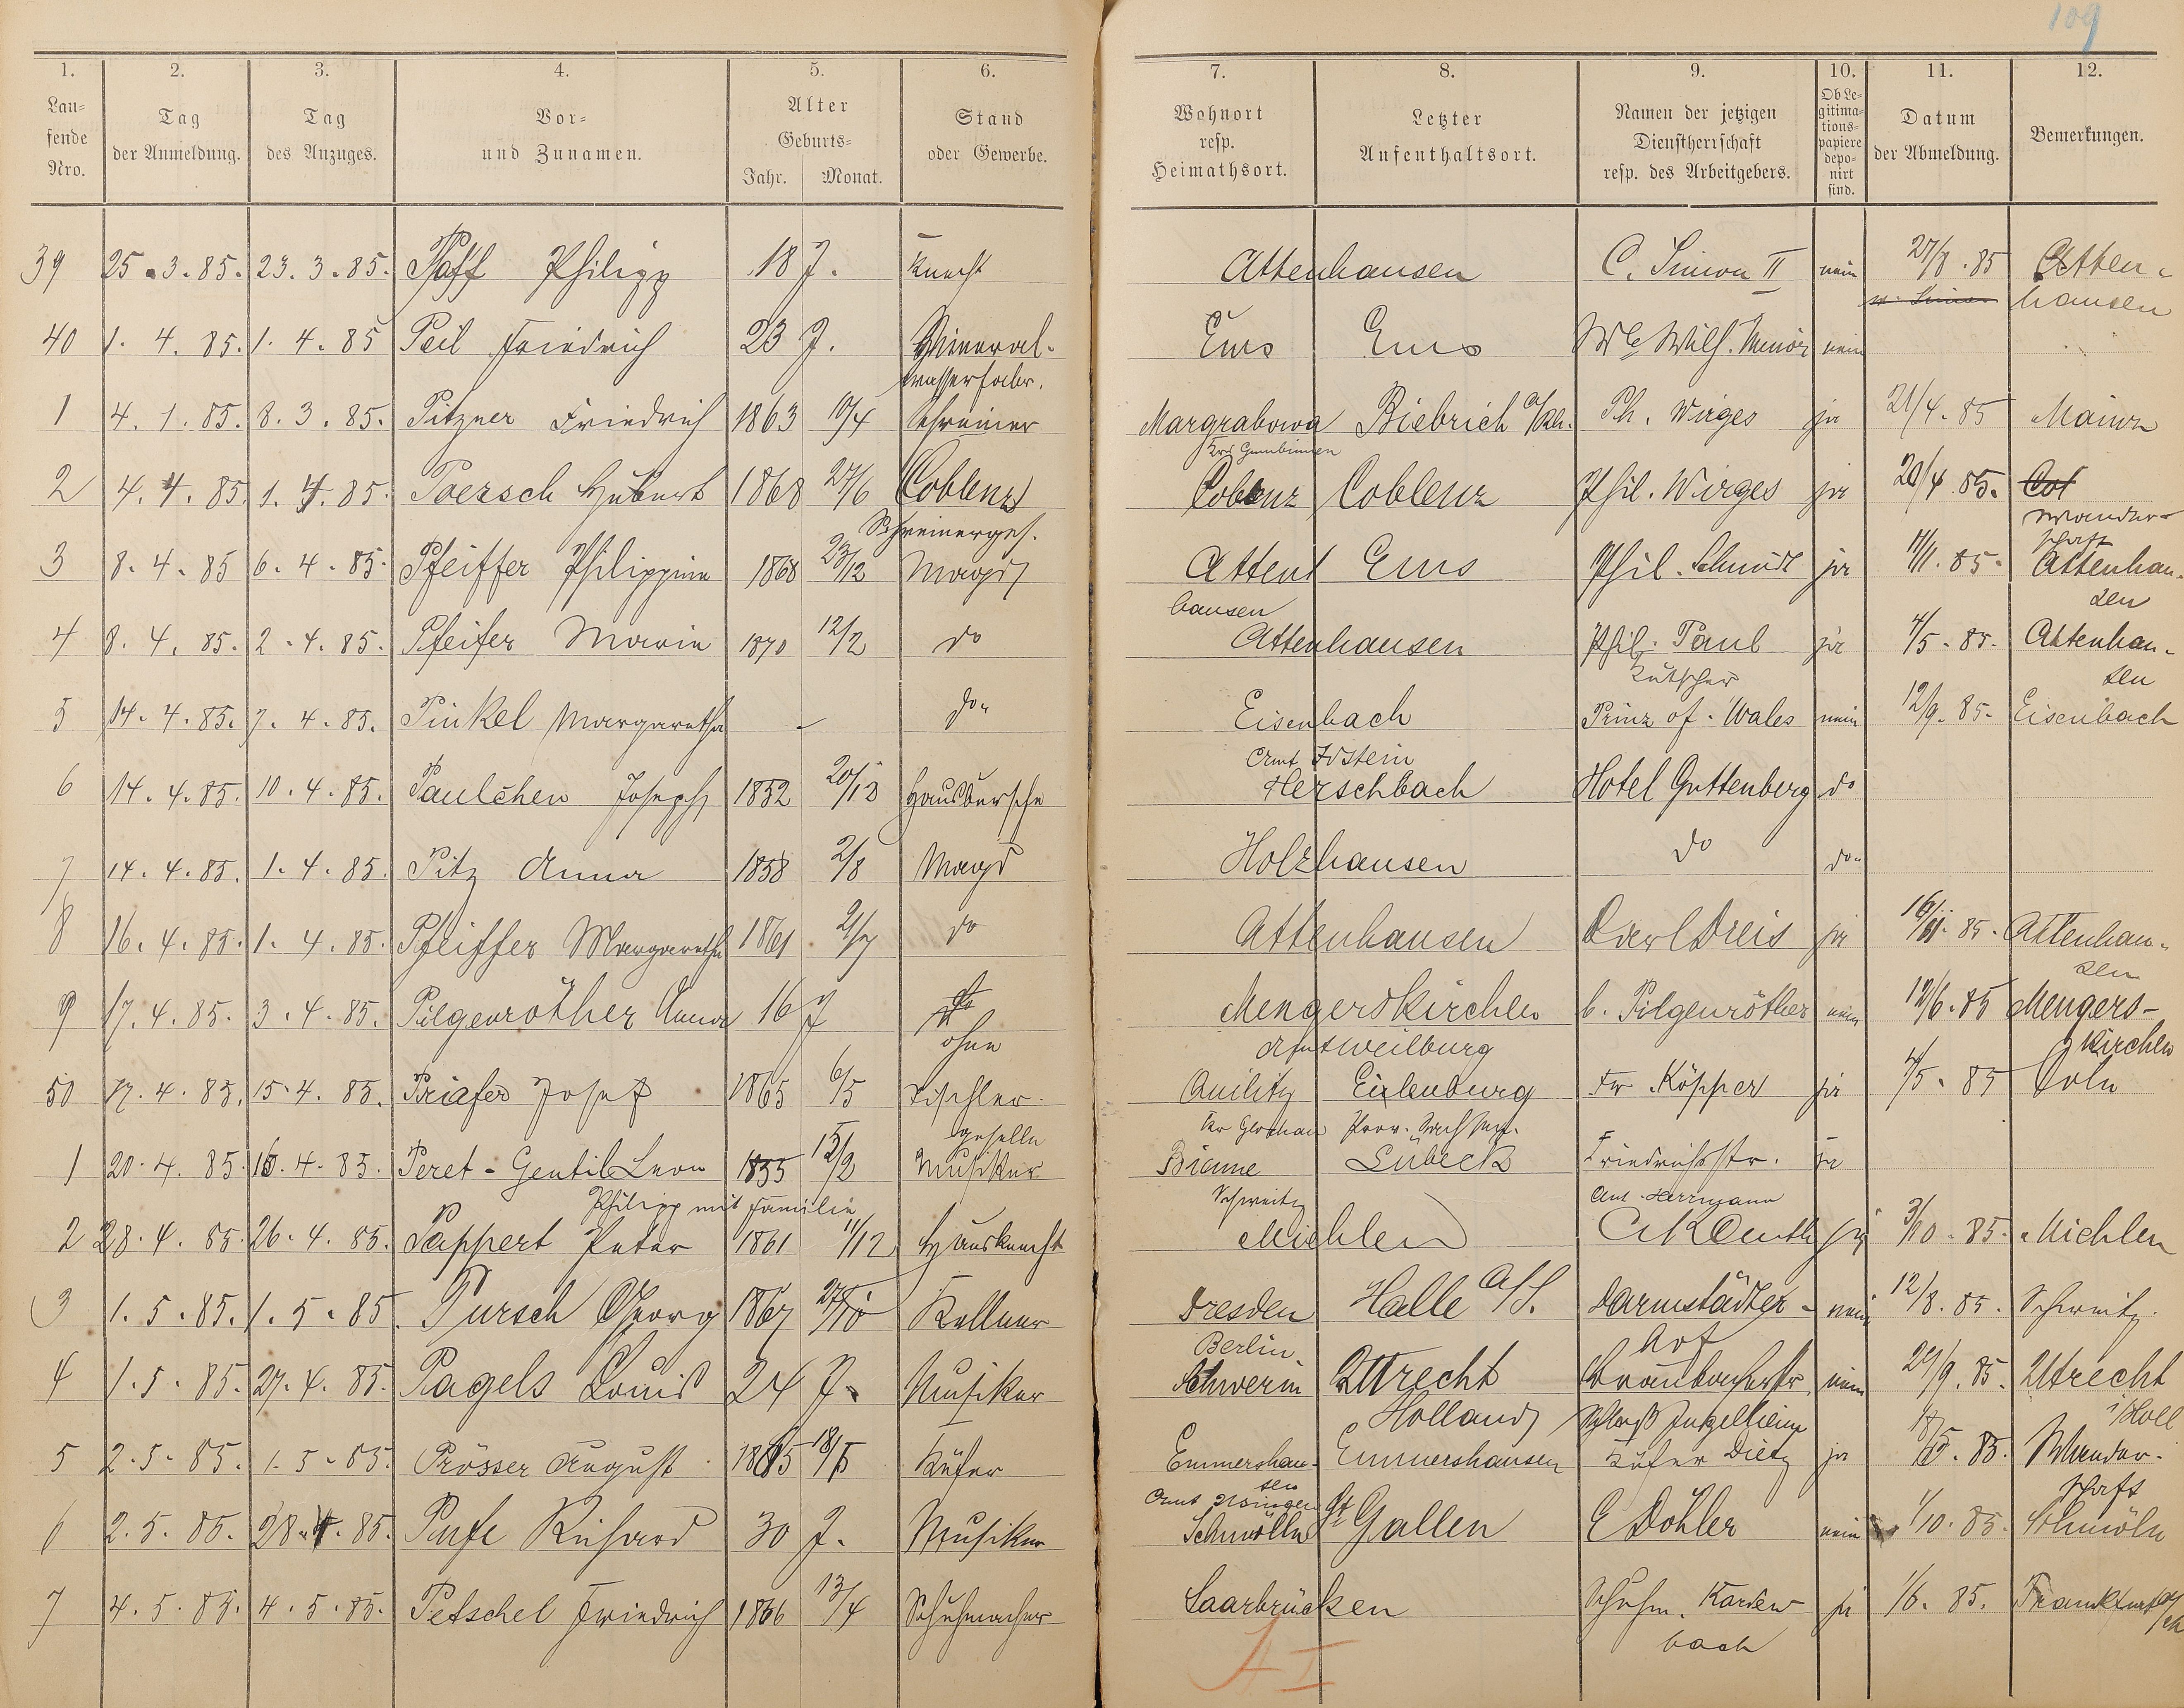 109
1. 2. 3. 4. 5. 6. 7. 8. 9. 10. 11. 12.
Lau-
fende
Nro.
Tag
der Anmeldung.
Tag
des Anzuges.
Vor-
und Zunamen.
Alter
Geburts-
Jahr. Monat.
Stand
oder Gewerbe.
Wohnort
resp.
Heimathsort.
Letzter
Aufenthaltsort.
Namen der jetzigen
Dienstherrschaft
resp. des Arbeitgebers.
Ob Le-
gitima-
tions-
papiere
depo-
nirt
sind.
Datum
der Abmeldung.
Bemerkungen.
39 25.3.85. 23.3.85. Pfaff Philipp 18 J. Knecht Attenhausen C. Simon II nein 27/8.85 Atten-
hausen
40 1.4.85. 1.4.85 Peil Friedrich 23 J. Mineral- Ems Ems nein
wasserfabr.
1 4.1.85. 8.3.85. Pitzner Friedrich 1863 10/4 Schreiner Margrabowa Biebrich a/Rh. Ph. Wirges ja 21/4.85 Mainz
Krs Gumbinnen
2 4.4.85. 1.4.85. Poersch Hubert 1868 27/6 Coblenz Coblenz Coblenz Phil. Wirges ja 20/4 85. Cob
Schreinerges. Wander-
schaft
3 8.4.85 6.4.85. Pfeiffer Philippine 1868 23/12 Magd Atten Ems Phil. Schmidt ja 11/11.85. Attenhau-
hausen sen
4 8.4.85. 2.4.85. Pfeifer Marie 1870 12/2 do Attenhausen Phil. Paul ja 4/5.85. Attenhau-
Kutscher sen
5 14.4.85. 7.4.85. Pinkel Margaretha - do. Eisenbach Prinz of. Wales nein 12/9.85. Eisenbach
Amt Idstein
6 14.4.85. 10.4.85. Paulchen Joseph 1852 20/12 Hausbursche Herschbach Hotel Guttenberg do
7 14.4.85. 1.4.85. Pitz Anna 1858 2/8 Magd Holzhausen do do.
8 16.4.85. 1.4.85. Pfeiffer Margaretha 1861 2/7 do Attenhausen Carl Dreis ja 16/11.85. Attenhau-
sen
9 17.4.85. 3.4.85. Pilgenröther Anna 16 J do Mengerskirchen b. Pilgenröther nein 12/6.85 Mengers-
ohne Amt Weilburg kirchen
50 17.4.85. 15.4.85. Josef 1865 6/5 Tischler- Eulenburg Fr. Köpper ja 4/5.85 Coln
geselle Prov. Sachsen.
1 20.4.85. 15.4.85. Peret-Gentil Leon 1855 Musiker Bienne Lübeck Friedrichstr. ja
Philipp mit Familie Schweitz Ant. Herrmann
2 28.4.85. 26.4.85. Pappert Peter 1861 11/12 Hausknecht Miehlen ja 3/10.85. Miehlen
3 1.5.85. 1.5.85. Pursch Georg 1867 27/10 Kellner Dresden Halle a/S. Darmstädter- nein 12/8.85. Schweitz.
Berlin Hof
4 1.5.85. 27.4.85. Pagels Louis 24 J. Musiker Schwerin Uttrecht Braubacherstr nein 27/9.85. Utrecht
Holland Schloß Ingelheim i/Holl
5 2.5.85. 1.5.85. Prösser August 1865 18/5 Küfer Emmershau- Emmershausen Küfer Dietz ja 18/5.85. Wander-
sen schaft
Amt Usingen
6 2.5.85. 28.4.85. Richard 30 J. Musiker Schmölln St Gallen E Döhler nein 1/10.85. Schmöln
7 4.5.85. 4.5.85. Petschel Friedrich 1866 13/4 Schuhmacher Saarbrücken Schuhm. Karden ja 1/6.85. Frankfurt a/M
bach
A I